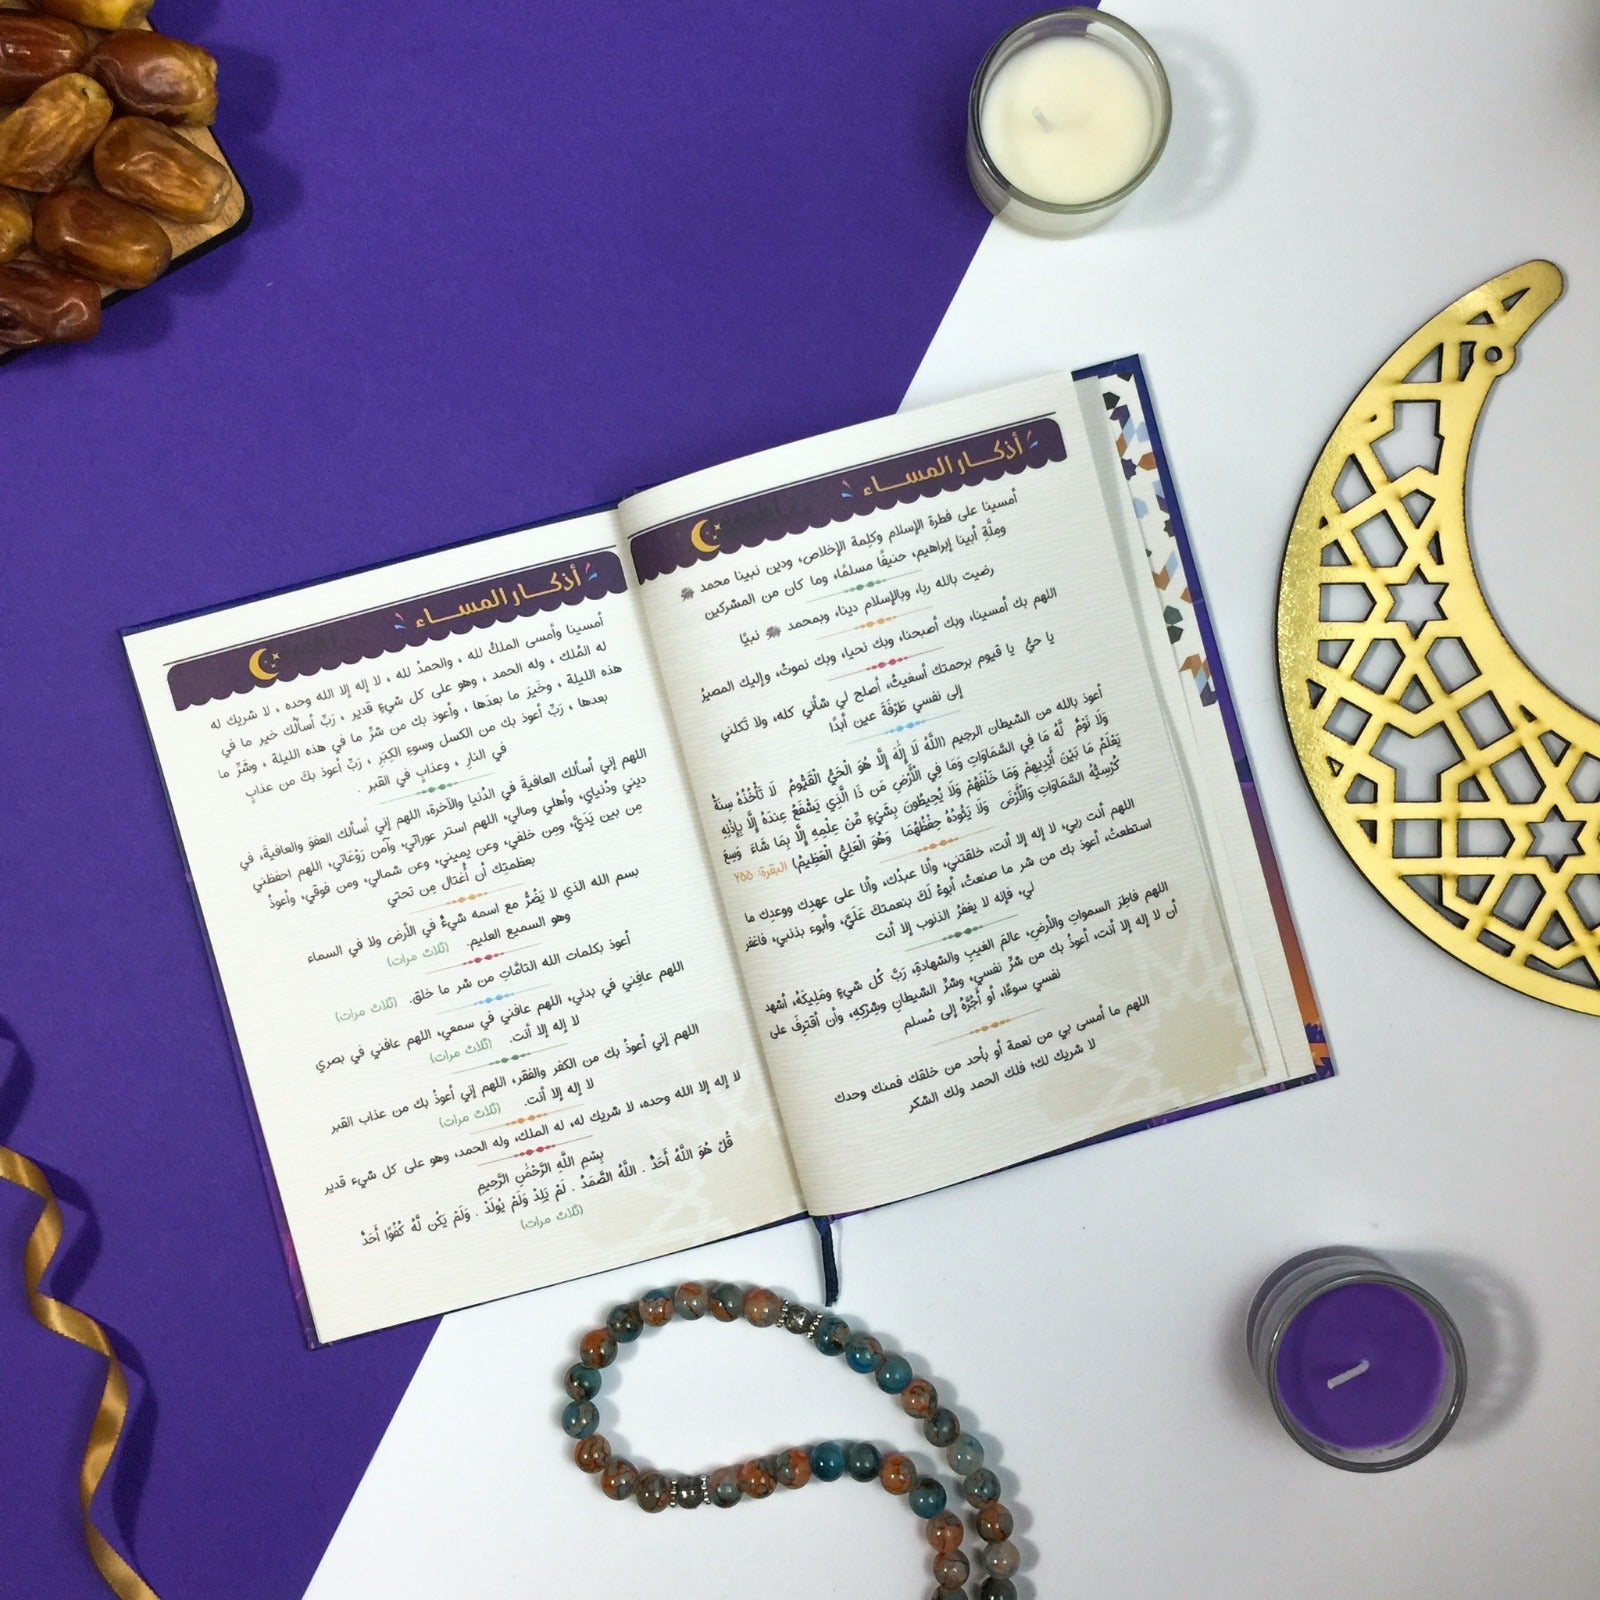 أذكــار المســـاء
أمسينا على فطرة الإسلام وكلِمة الإخلاص، ودين نبينا محمد ﷺ
ومِلَّةِ أبينا إبراهيم، حنيفًا مسلمًا، وما كان من المشركين
رضيت بالله ربا، وبالإسلام دينا، وبمحمد ﷺ نبيًا
اللهم بك أمسينا، وبك أصبحنا، وبك نحيا، وبك نموتُ، وإليك المصيرُ
يا حيُّ يا قيوم برحمتك أسغيثُ، أصلح لي شأني كله، ولا تَكلني
إلى نفسي طَرْفَةَ عين أبدًا
أعوذ بالله من الشيطان الرجيم (اللَّهُ لَا إِلَٰهَ إِلَّا هُوَ الْحَيُّ الْقَيُّومُ لَا تَأْخُذُهُ سِنَةٌ
وَلَا نَوْمٌ لَّهُ مَا فِي السَّمَاوَاتِ وَمَا فِي الْأَرْضِ مَن ذَا الَّذِي يَشْفَعُ عِندَهُ إِلَّا بِإِذْنِهِ
يَعْلَمُ مَا بَيْنَ أَيْدِيهِمْ وَمَا خَلْفَهُمْ وَلَا يُحِيطُونَ بِشَيْءٍ مِّنْ عِلْمِهِ إِلَّا بِمَا شَاءَ وَسِعَ
كُرْسِيُّهُ السَّمَاوَاتِ وَالْأَرْضَ وَلَا يَئُودُهُ حِفْظُهُمَا وَهُوَ الْعَلِيُّ الْعَظِيمُ) البقرة: ٢٥٥
اللهم أنت ربي، لا إله إلا أنت، خلقتني، وأنا عبدُك، وأنا على عهدِك ووعدِك ما
استطعتُ، أعوذ بك من شر ما صنعتُ، أبوءُ لَكَ بنعمتكَ عَلَيَّ، وأبوء بذنبي، فاغفر
لي، فإنه لا يغفرُ الذنوب إلا أنت
اللهم فاطِرَ السمواتِ والأرضِ، عالمَ الغيبِ والشهادةِ، رَبَّ كُل شيءٍ ومَلِيكَهُ، أشهد
أن لا إله إلا أنت، أعوذُ بك من شرِّ نفسي، وشرِّ الشيطانِ وشِرْكِهِ، وأن أقترِفَ على
نفسي سوءًا، أو أَجُرَّهُ إلى مُسلم
اللهم ما أمسى بي من نعمة أو بأحد من خلقك فمنك وحدك
لا شريك لك؛ فلك الحمد ولك الشكر
أذكــار المســـاء
أمسينا وأمسى الملكُ لله ، والحمدُ لله ، لا إله إلا الله وحده ، لا شريك له
له المُلك ، وله الحمد ، وهو على كل شيءٍ قدير ، رَبِّ أسألُك خير ما في
هذه الليلة ، وخَيرَ ما بعدَها ، وأعوذ بك من شرِّ ما في هذه الليلة ، وشَرِّ ما
بعدها ، رَبِّ أعوذ بك من الكسل وسوءِ الكِبَرِ ، رَبِّ أعوذ بكَ من عذابٍ
في النارِ ، وعذابٍ في القبر .
اللهم إني أسألك العافيةَ في الدُنيا والآخرة، اللهم إني أسألك العفوَ والعافيةَ، في
ديني ودُنيايَ، وأهلي ومالي، اللهم استر عوراتي، وآمن رَوْعَاتي، اللهم احفظني
مِن بين يَدَيَّ، ومن خلفي، وعن يميني، وعن شمالي، ومن فوقي، وأعوذُ
بعظمتِك أن أُغتال مِن تحتي
بسم الله الذي لا يَضُرُّ مع اسمه شيءٌ في الأرض ولا في السماء
وهو السميع العليم. (ثلاث مرات)
أعوذ بكلمات الله التامَّاتِ من شر ما خلق. (ثلاث مرات)
اللهم عافِني في بدني، اللهم عافني في سمعي، اللهم عافني في بصري
لا إله إلا أنت. (ثلاث مرات)
اللهم إني أعوذُ بك من الكفر والفقر، اللهم إني أعوذُ بك من عذاب القبر
لا إله إلا أنت. (ثلاث مرات)
لا إله إلا الله وحده، لا شريك له، له الملك، وله الحمد، وهو على كل شيء قدير
بِسْمِ اللَّهِ الرَّحْمَٰنِ الرَّحِيمِ
قُلْ هُوَ اللَّهُ أَحَدٌ . اللَّهُ الصَّمَدُ . لَمْ يَلِدْ وَلَمْ يُولَدْ . وَلَمْ يَكُن لَّهُ كُفُوًا أَحَدٌ
(ثلاث مرات)